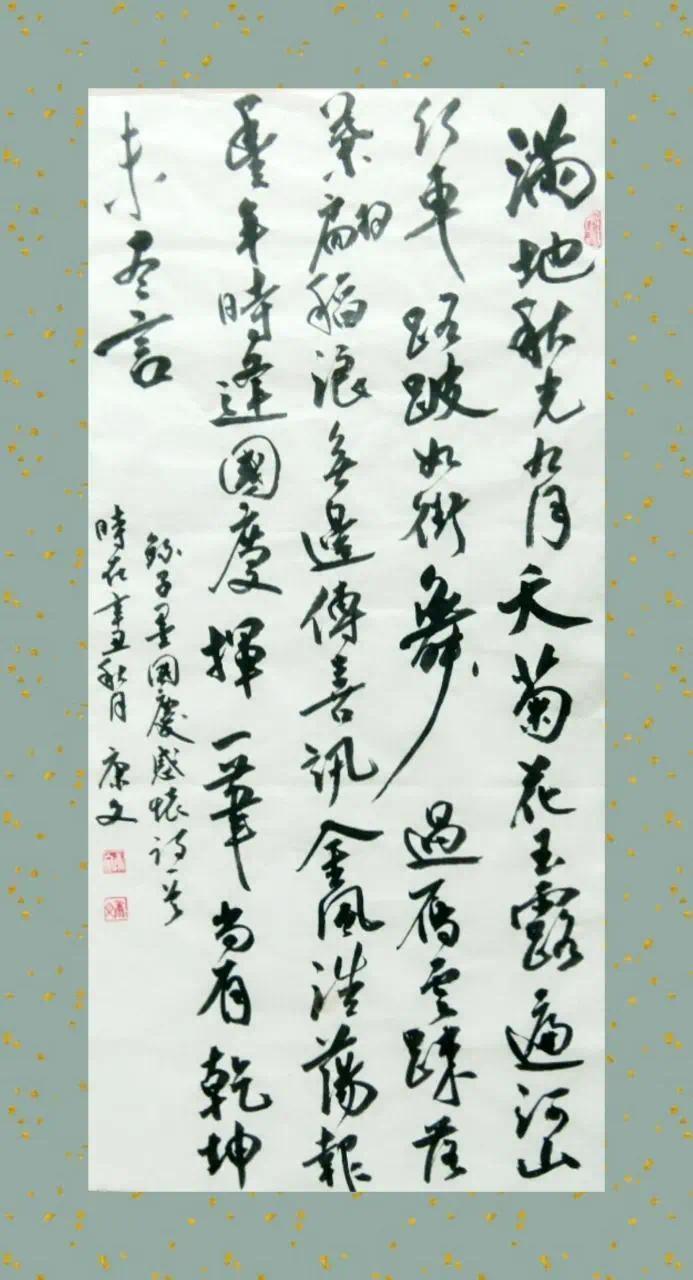 滿地秋光如月天菊花玉露遍河山
行車路跛如街舞過雁雲疎落
葉翩稻浪無邊傳喜訊金風浩蕩報
豐年時逢國慶揮一筆尚有乾坤
未盡言
錄子墨國慶感懷詩一首
時在辛丑秋月 康文